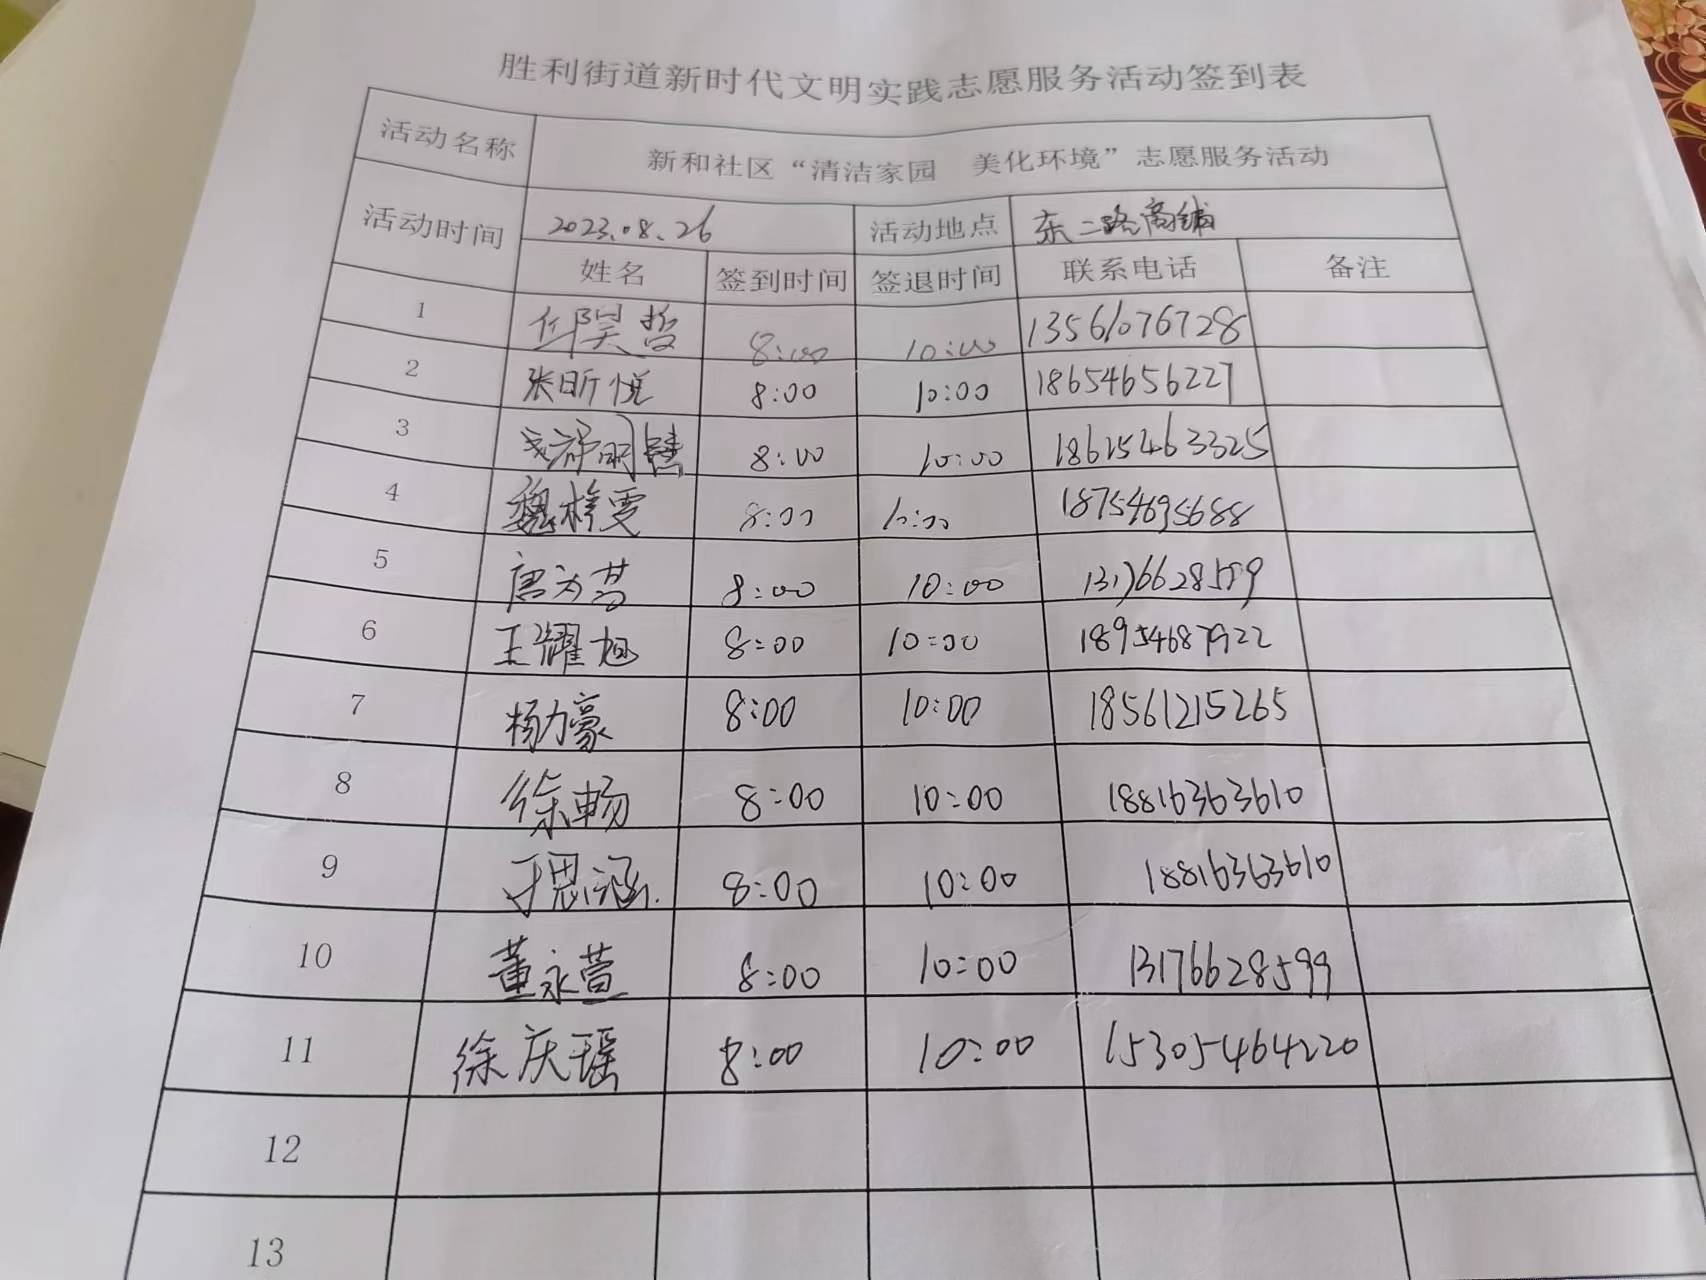 胜利街道新时代文明实践志愿服务活动签到表
活动名称 新和社区“清洁家园 美化环境”志愿服务活动
活动时间 2023.08.26 活动地点 东二路商铺
姓名 签到时间 签退时间 联系电话 备注
1 昊哲 8:00 10:00 13561076728
2 张昕悦 8:00 10:00 18654656227
3 8:00 10:00 18615463325
4 魏梓雯 8:00 10:00 18754695688
5 唐为 8:00 10:00 13176628599
6 王耀旭 8:00 10:00 18954687922
7 杨力豪 8:00 10:00 18561215265
8 徐畅 8:00 10:00 18816363610
9 于思涵 8:00 10:00 18816363610
10 董永萱 8:00 10:00 13176628599
11 徐庆瑶 8:00 10:00 15305464220
12
13